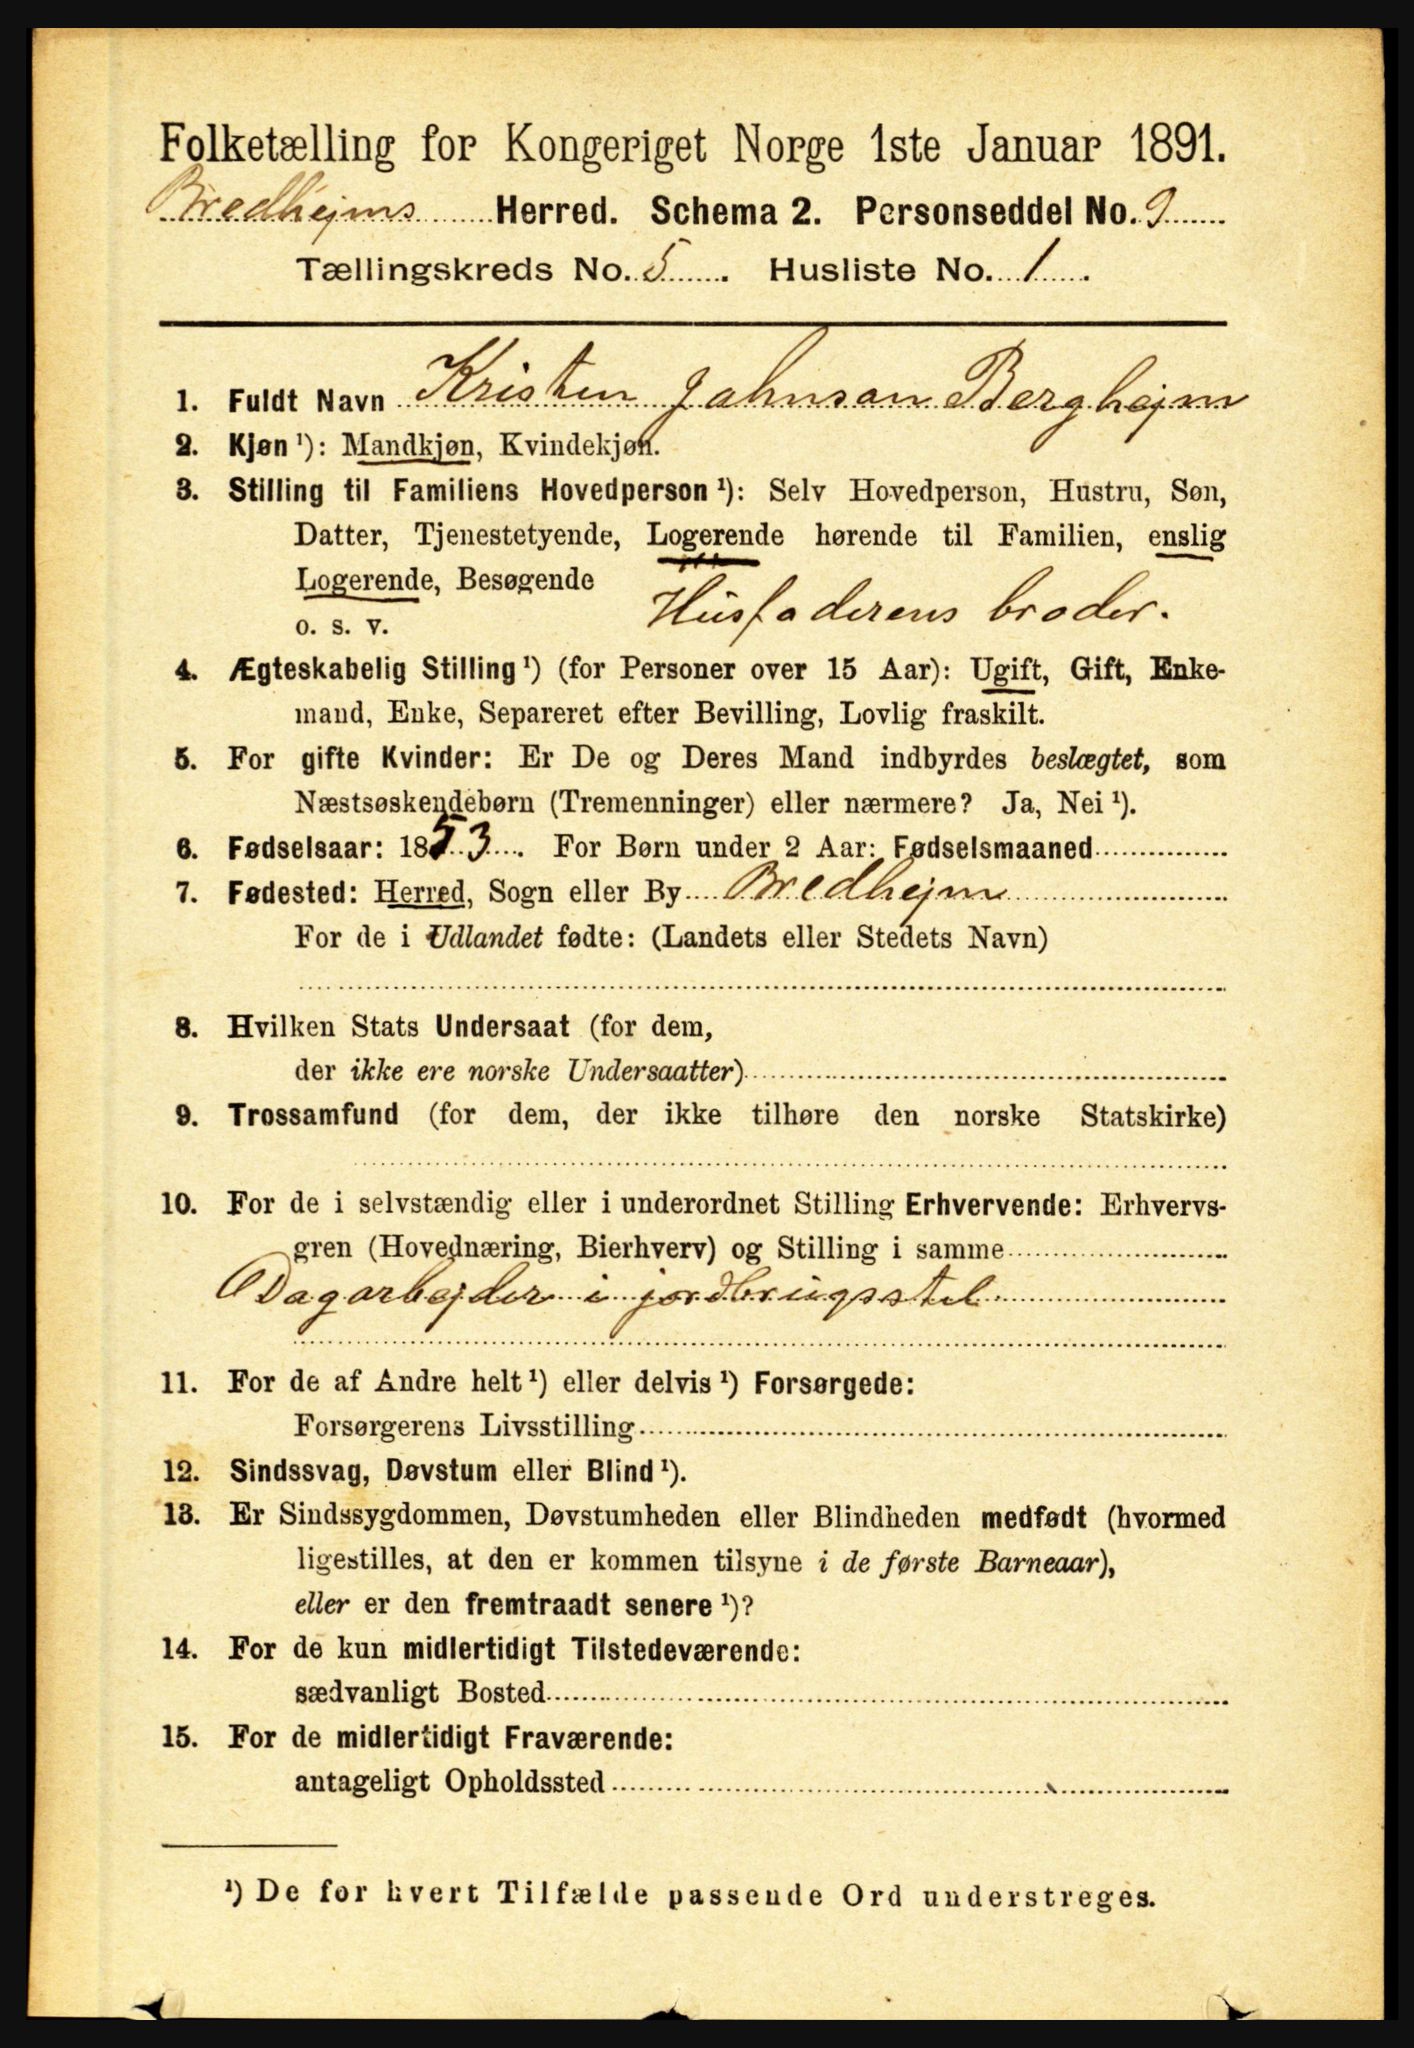 Folketælling for Kongeriget Norge 1ste Januar 1891.
Bredhejms Herred. Schema 2. Personseddel No. 9
Tællingskreds No. 5. Husliste No. 1.
1. Fuldt Navn Kristen Johnson Berghejm
2. Kjøn ¹): Mandkjøn, Kvindekjøn.
3. Stilling til Familiens Hovedperson ¹): Selv Hovedperson, Hustru, Søn,
Datter, Tjenestetyende, Logerende hørende til Familien, enslig
Logerende, Besøgende
o. s. v. Husfaderens broder.
4. Ægteskabelig Stilling ¹) (for Personer over 15 Aar): Ugift, Gift, Enke-
mand, Enke, Separeret efter Bevilling, Lovlig fraskilt.
5. For gifte Kvinder: Er De og Deres Mand indbyrdes beslægtet, som
Næstsøskendebørn (Tremenninger) eller nærmere? Ja, Nei ¹).
6. Fødselsaar: 1853. For Børn under 2 Aar: Fødselsmaaned
7. Fødested: Herred, Sogn eller By Bredhejm
For de i Udlandet fødte: (Landets eller Stedets Navn)
8. Hvilken Stats Undersaat (for dem,
der ikke ere norske Undersaatter)
9. Trossamfund (for dem, der ikke tilhøre den norske Statskirke)
10. For de i selvstændig eller i underordnet Stilling Erhvervende: Erhvervs-
gren (Hovednæring, Bierhverv) og Stilling i samme
Dagarbejder i jordbrugsstel
11. For de af Andre helt ¹) eller delvis ¹) Forsørgede:
Forsørgerens Livsstilling
12. Sindssvag, Døvstum eller Blind ¹).
13. Er Sindssygdommen, Døvstumheden eller Blindheden medfødt (hvormed
ligestilles, at den er kommen tilsyne i de første Barneaar),
eller er den fremtraadt senere ¹)?
14. For de kun midlertidigt Tilstedeværende:
sædvanligt Bosted
15. For de midlertidigt Fraværende:
antageligt Opholdssted
¹) De for hvert Tilfælde passende Ord understreges.